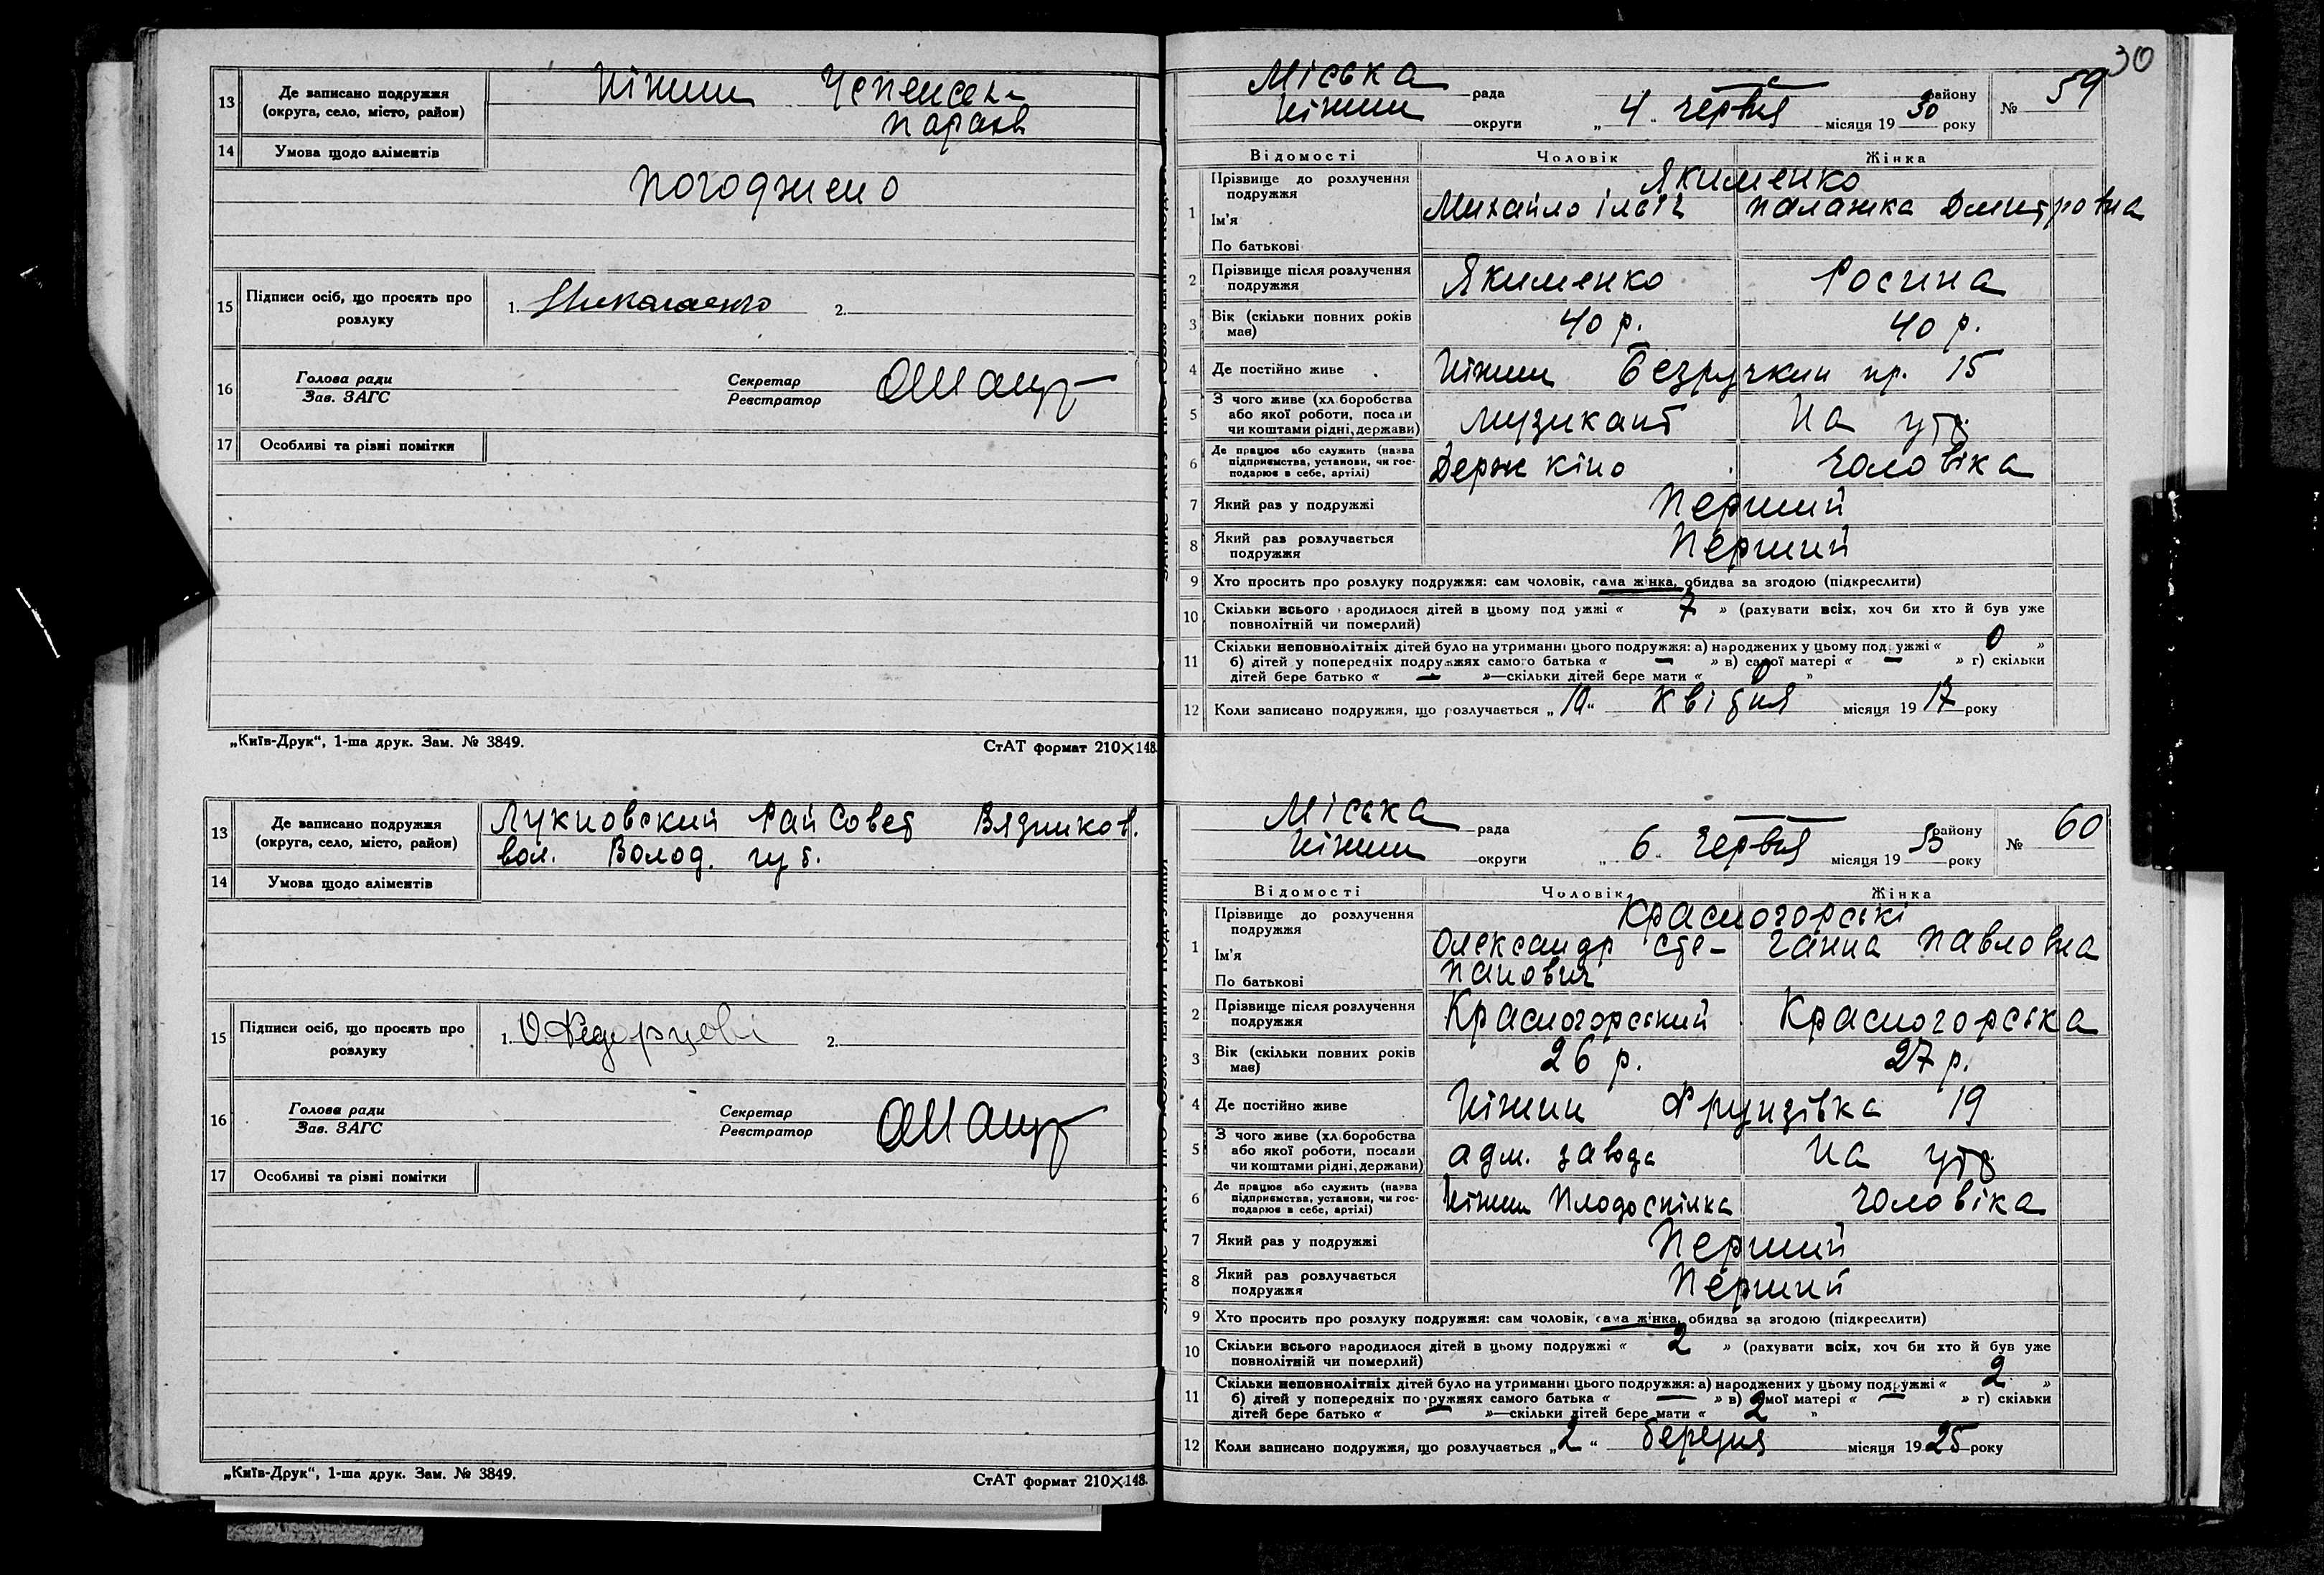 13 Де записано подружжя (округа, село, місто, район) Ніжин Успенськ
парахв
14 Умова щодо аліментів
погоджено
15 Підписи осіб, що просять про розлуку 1. 2.
16 Голова ради Зав. ЗАГС Секретар Реєстратор
17 Особливі та різні помітки
„Київ-Друк“, 1-ша друк. Зам. № 3849. СтАТ формат 210×148.
13 Де записано подружжя (округа, село, місто, район) Лукновский РайСовет Вязников.
вол. Волод. губ.
14 Умова щодо аліментів
15 Підписи осіб, що просять про розлуку 1. 2.
16 Голова ради Зав. ЗАГС Секретар Реєстратор
17 Особливі та різні помітки
„Київ-Друк“, 1-ша друк. Зам. № 3849. СтАТ формат 210×148.
30
Міська рада району № 59
Ніжин округи „ 4 „ червня місяця 19 30 року
Відомості Чоловік Жінка
1 Прізвище до розлучення подружжя Якименко
Ім'я Михайло Ілліч Палажка Дмитровна
По батькові
2 Прізвище після розлучення подружжя Якименко Росина
3 Вік (скільки повних років має) 40 р. 40 р.
4 Де постійно живе Ніжин Безручкин пр. 15
5 З чого живе (хліборобства або якої роботи, посади чи коштами рідні, держави) музикант На утр.
6 Де працює або служить (назва підприємства, установи, чи господарює в себе, артілі) Держ кіно чоловіка
7 Який раз у подружжі Перший
8 Який раз розлучається подружжя Перший
9 Хто просить про розлуку подружжя: сам чоловік, сама жінка, обидва за згодою (підкреслити)
10 Скільки всього народилося дітей в цьому подружжі « 7 » (рахувати всіх, хоч би хто й був уже
повнолітній чи померлий)
11 Скільки неповнолітніх дітей було на утриманні цього подружжя: а) народжених у цьому подружжі « 0 »
б) дітей у попередніх подружжях самого батька « — » в) самої матері « — » г) скільки
дітей бере батько « — »—скільки дітей бере мати « 0 »
12 Коли записано подружжя, що розлучається „ 10 “ квітня місяця 19 17 року
Міська рада району № 60
Ніжин округи „ 6 „ червня місяця 19 30 року
Відомості Чоловік Жінка
1 Прізвище до розлучення подружжя Красногорські
Ім'я Олександр Сте- Ганна Павловна
По батькові панович
2 Прізвище після розлучення подружжя Красногорський Красногорська
3 Вік (скільки повних років має) 26 р. 27 р.
4 Де постійно живе Ніжин Фрунзівка 19
5 З чого живе (хліборобства або якої роботи, посади чи коштами рідні, держави) адм. завода На утр.
6 Де працює або служить (назва підприємства, установи, чи господарює в себе, артілі) Ніжин Плодоспілка чоловіка
7 Який раз у подружжі Перший
8 Який раз розлучається подружжя Перший
9 Хто просить про розлуку подружжя: сам чоловік, сама жінка, обидва за згодою (підкреслити)
10 Скільки всього народилося дітей в цьому подружжі « 2 » (рахувати всіх, хоч би хто й був уже
повнолітній чи померлий)
11 Скільки неповнолітніх дітей було на утриманні цього подружжя: а) народжених у цьому подружжі « 2 »
б) дітей у попередніх подружжях самого батька « — » в) самої матері « — » г) скільки
дітей бере батько « — »—скільки дітей бере мати « 2 »
12 Коли записано подружжя, що розлучається „ 2 “ березня місяця 19 25 року